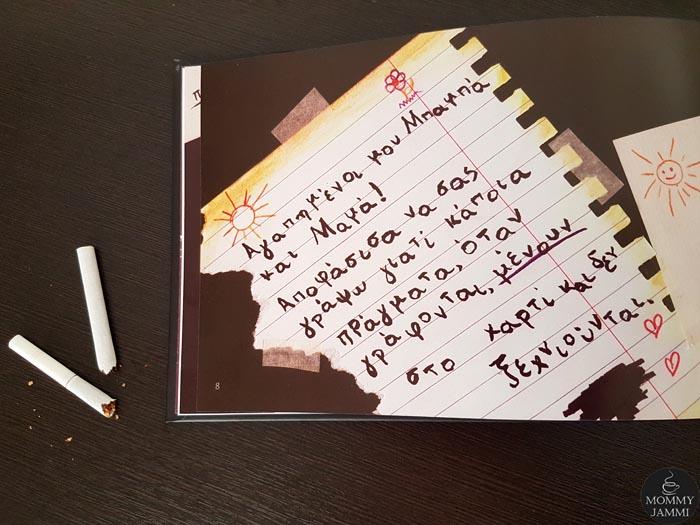 Αγαπημένοι μου Μπαμπά
και Μαμά!
Αποφάσισα να σας
γράψω γιατί κάποια
πράγματα, όταν
γράφονται, μένουν
στο χαρτί και δεν
ξεχνιούνται.
8
MOMMY
JAMMI